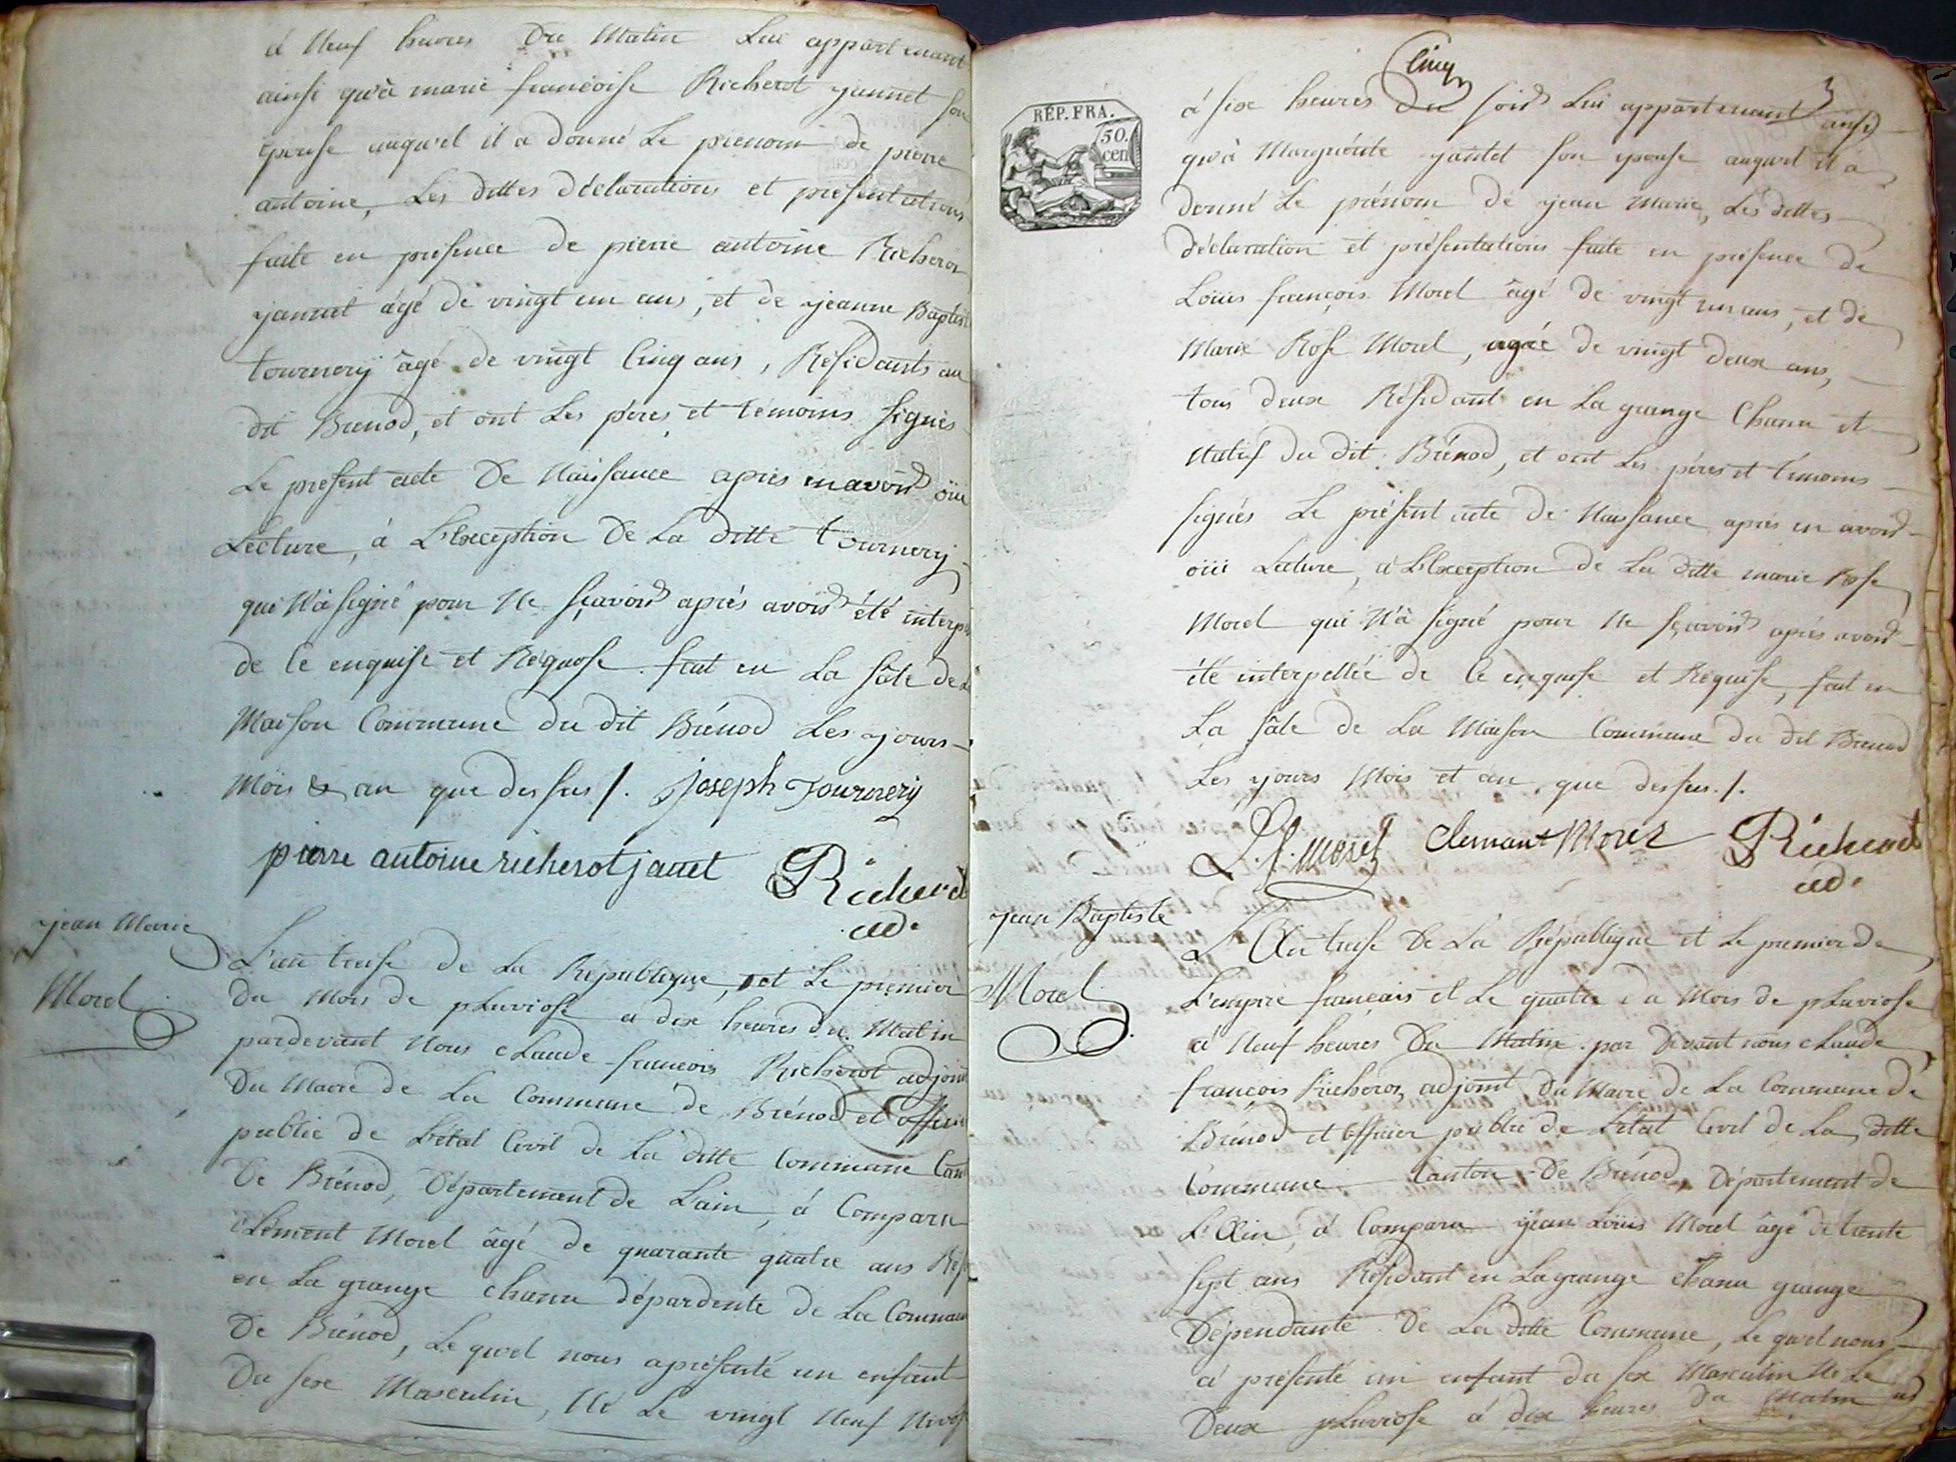 à Neuf heures Du Matin Lui appartenant
ainsi qu'à marie francoise Richerot yannet son
épouse auquel il a donné Le prenom de pierre
antoine, Les dittes déclarations et présentations
faite en présence de pierre antoine Richerot
yannet âgé de vingt un ans, et de yeanne Baptiste
tournery âgé de vingt Cinq ans, Résidants au
dit Brénod, et ont Les pères et témoins signés
Le présent acte De Naissance après en avoir oüi
Lecture, à L'Exception De La ditte tournery
qui N'à signé pour Ne sçavoir après avoir été interp
de Ce enquise et Réquose. fait en La sâle de La
Maison Commune du dit Brénod Les yours
Mois & an que dessus /. joseph Tournery
pierre antoine richerot janet Richerot
ad.
yean Marie
Morel
L'an treise de La République, et Le premier
Du Mois de pLuviose a dix heures du Matin
pardevant Nous cLaude francois Richerot adjoint
Du Maire de La Commune de Brénod et officier
public de L'état Civil de La ditte Commune Can
De Brénod, Département de Lain, à Comparu
cLément Morel âgé de quarante quatre ans Rés
en La grange chanu dépardente de La Commune
De Brénod, Le quel nous aprésenté un enfant
Du sexe Masculin, Né Le vingt Neuf Nivose
Cinq
3
RÉP. FRA.
50.
cen
à six heures du soir Lui appartenant ansi
qu'à Marguérite yantet son épouse auquel il a
donné Le prénom de yean Marie, Les dittes
déclaration et présentations faite en présence de
Loüis françois Morel âgé de vingt un ans, et de
Marie Rose Morel, agée de vingt deux ans,
tous deux Résidant en La grange Chanu et
Natif du dit Brénod, et ont Les péres et témoins
signés Le présent acte de Naissance après en avoir
oüi Lecture, à L'Exception de La ditte marie Rose
Morel qui N'à signé pour Ne sçavoir après avoir
été interpellée de Ce enquise et Réquise, fait en
La sâle de La Maison Commune du dit Brénod
Les yours Mois et an que dessus. /.
L. f. morel Clemant Morel Richerot
ad.
yean Baptiste
Morel
L'An treise De La République et Le premier de
L'empire français et Le quatre du Mois de pLuviose
à Neuf heures Du Matin par devant nous cLaude
françois Richerot adjoint Du Maire de La Commune de
Brénod et officier public de L'état Civil de La ditte
Commune Canton De Brénod, Département de
L'Ain, à Comparu yean Loüis Morel âgé de trente
sept ans Résidant en La grange chanu grange
Dépendante De La ditte Commune, Le quel nous
à présenté un enfant du sex Masculin Né Le
Deux pLuviose à dix heures Du Matin